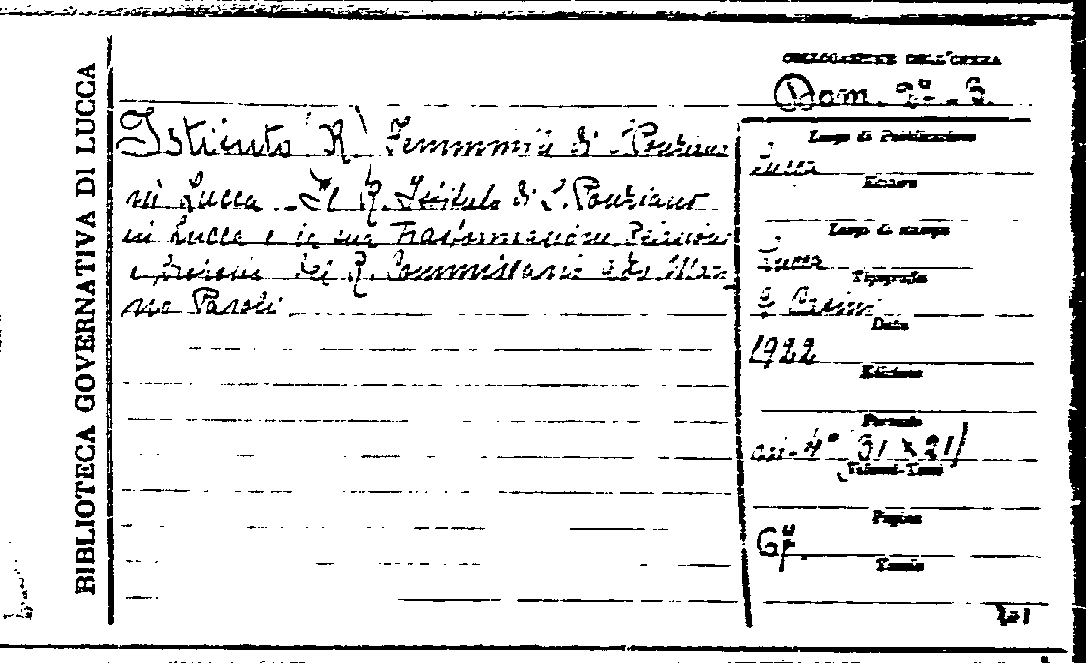 BIBLIOTECA GOVERNATIVA DI LUCCA
COLLOCAZIONE DELL'OPERA
Dom. 2ª - 3.
Istituto (R) Femminile di S. Ponziano
in Lucca - Il R. Istituto di S. Ponziano
in Lucca e la sua Trasformazione. Relazione
del R. Commissario
Paroli
Luogo di Pubblicazione
Lucca
Editore
Luogo di stampa
Lucca
Tipografia
Data
1922
Edizione
Formato
in-4° (31 x 21)
Volumi-Tomi
Pagine
Tavole